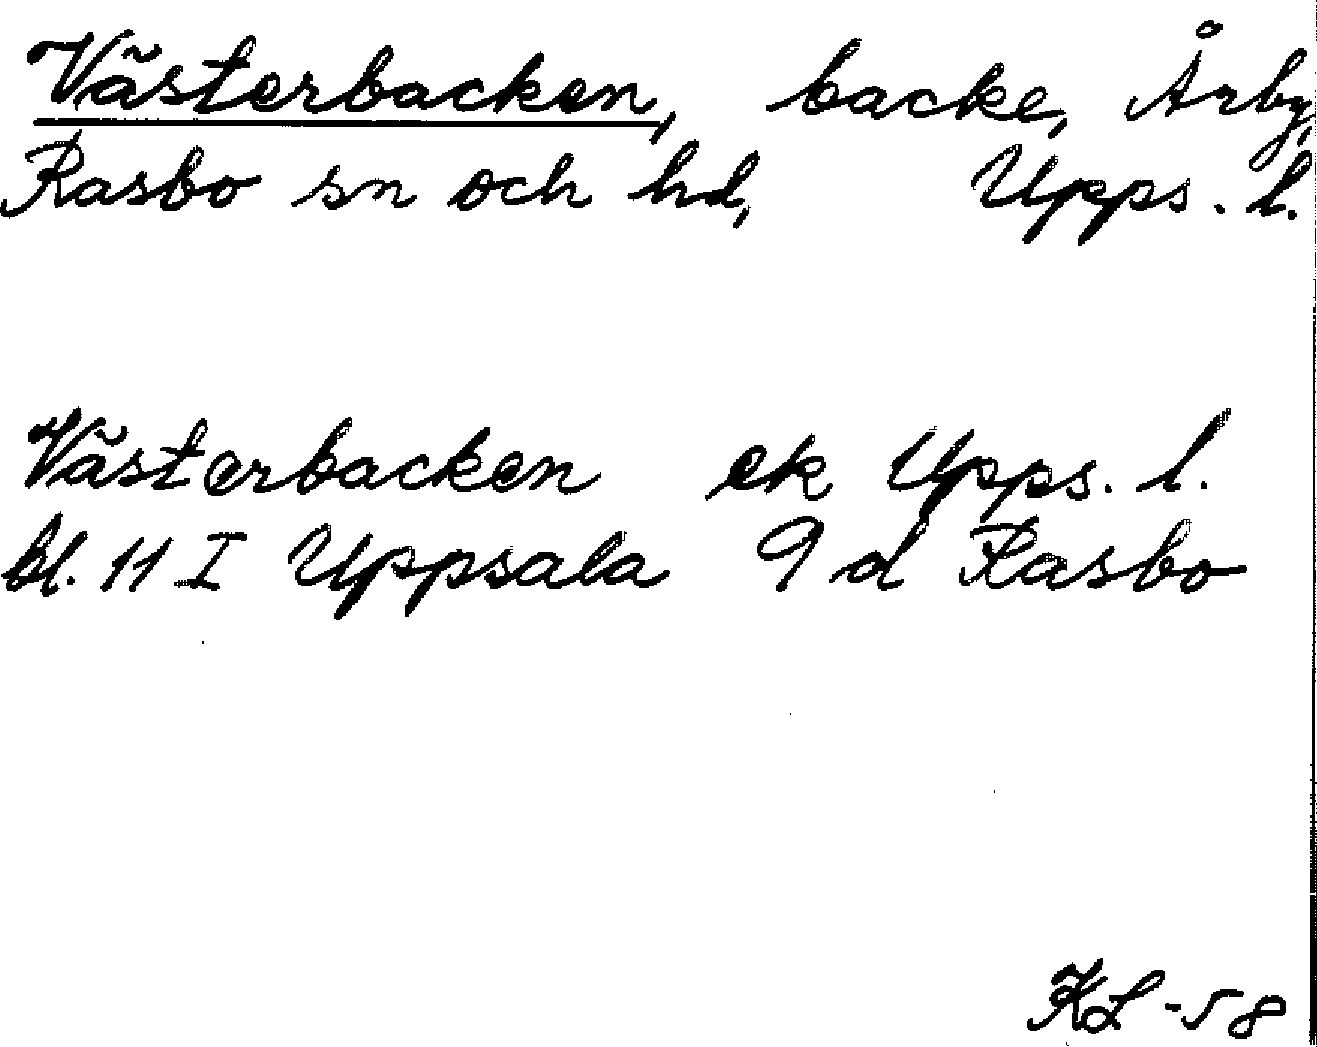 Västerbacken, backe, Årby,
Rasbo sn och hd, Upps. l.
Västerbacken ek Upps. l.
bl. 11 I Uppsala 9 d Rasbo
KL -58